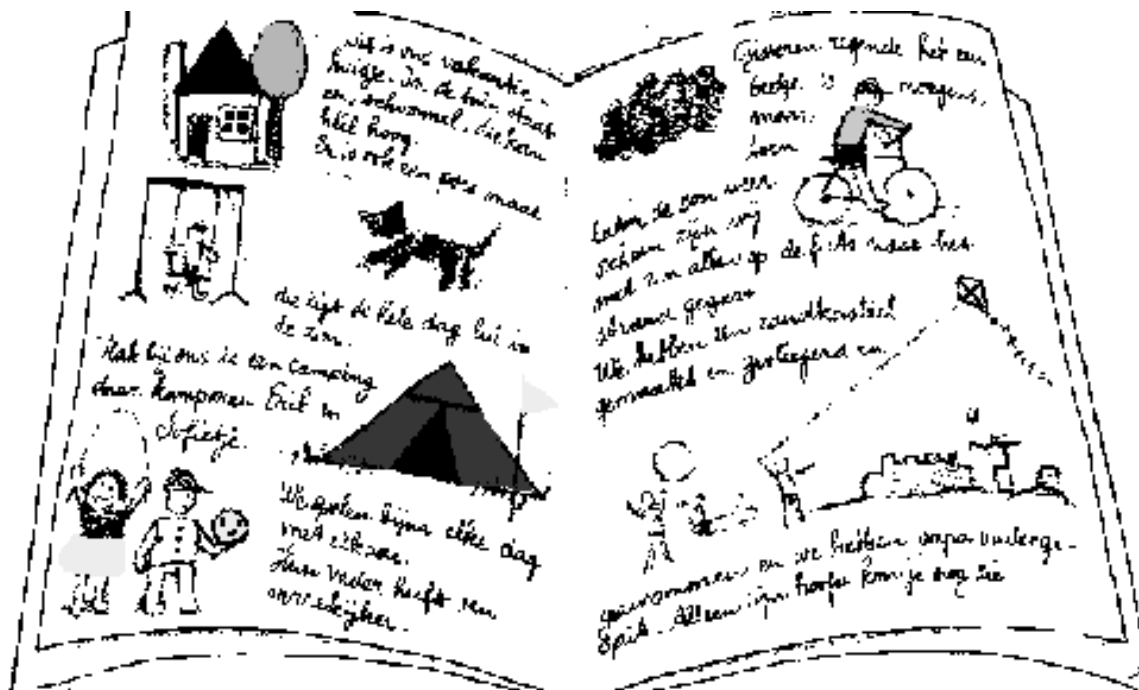 Dit is ons vakantie-
huisje. In de tuin staat
een schommel, die kan
héél hoog.
Er is ook een poes maar
die ligt de hele dag lui in
de zon.
Vlak bij ons is een camping
daar kamperen Erik en
Sofietje.
We spelen bijna elke dag
met elkaar.
Hun vader heeft een
verrekijker.
Gisteren regende het een
beetje 's morgens,
maar
toen
de zon weer
scheen zijn wij
met z'n allen op de fiets naar het
strand gegaan
We hebben een zandkasteel
gemaakt en gevliegerd en
gezwommen en we hebben papa onderge-
spit. Alleen zijn hoofd kon je nog zie